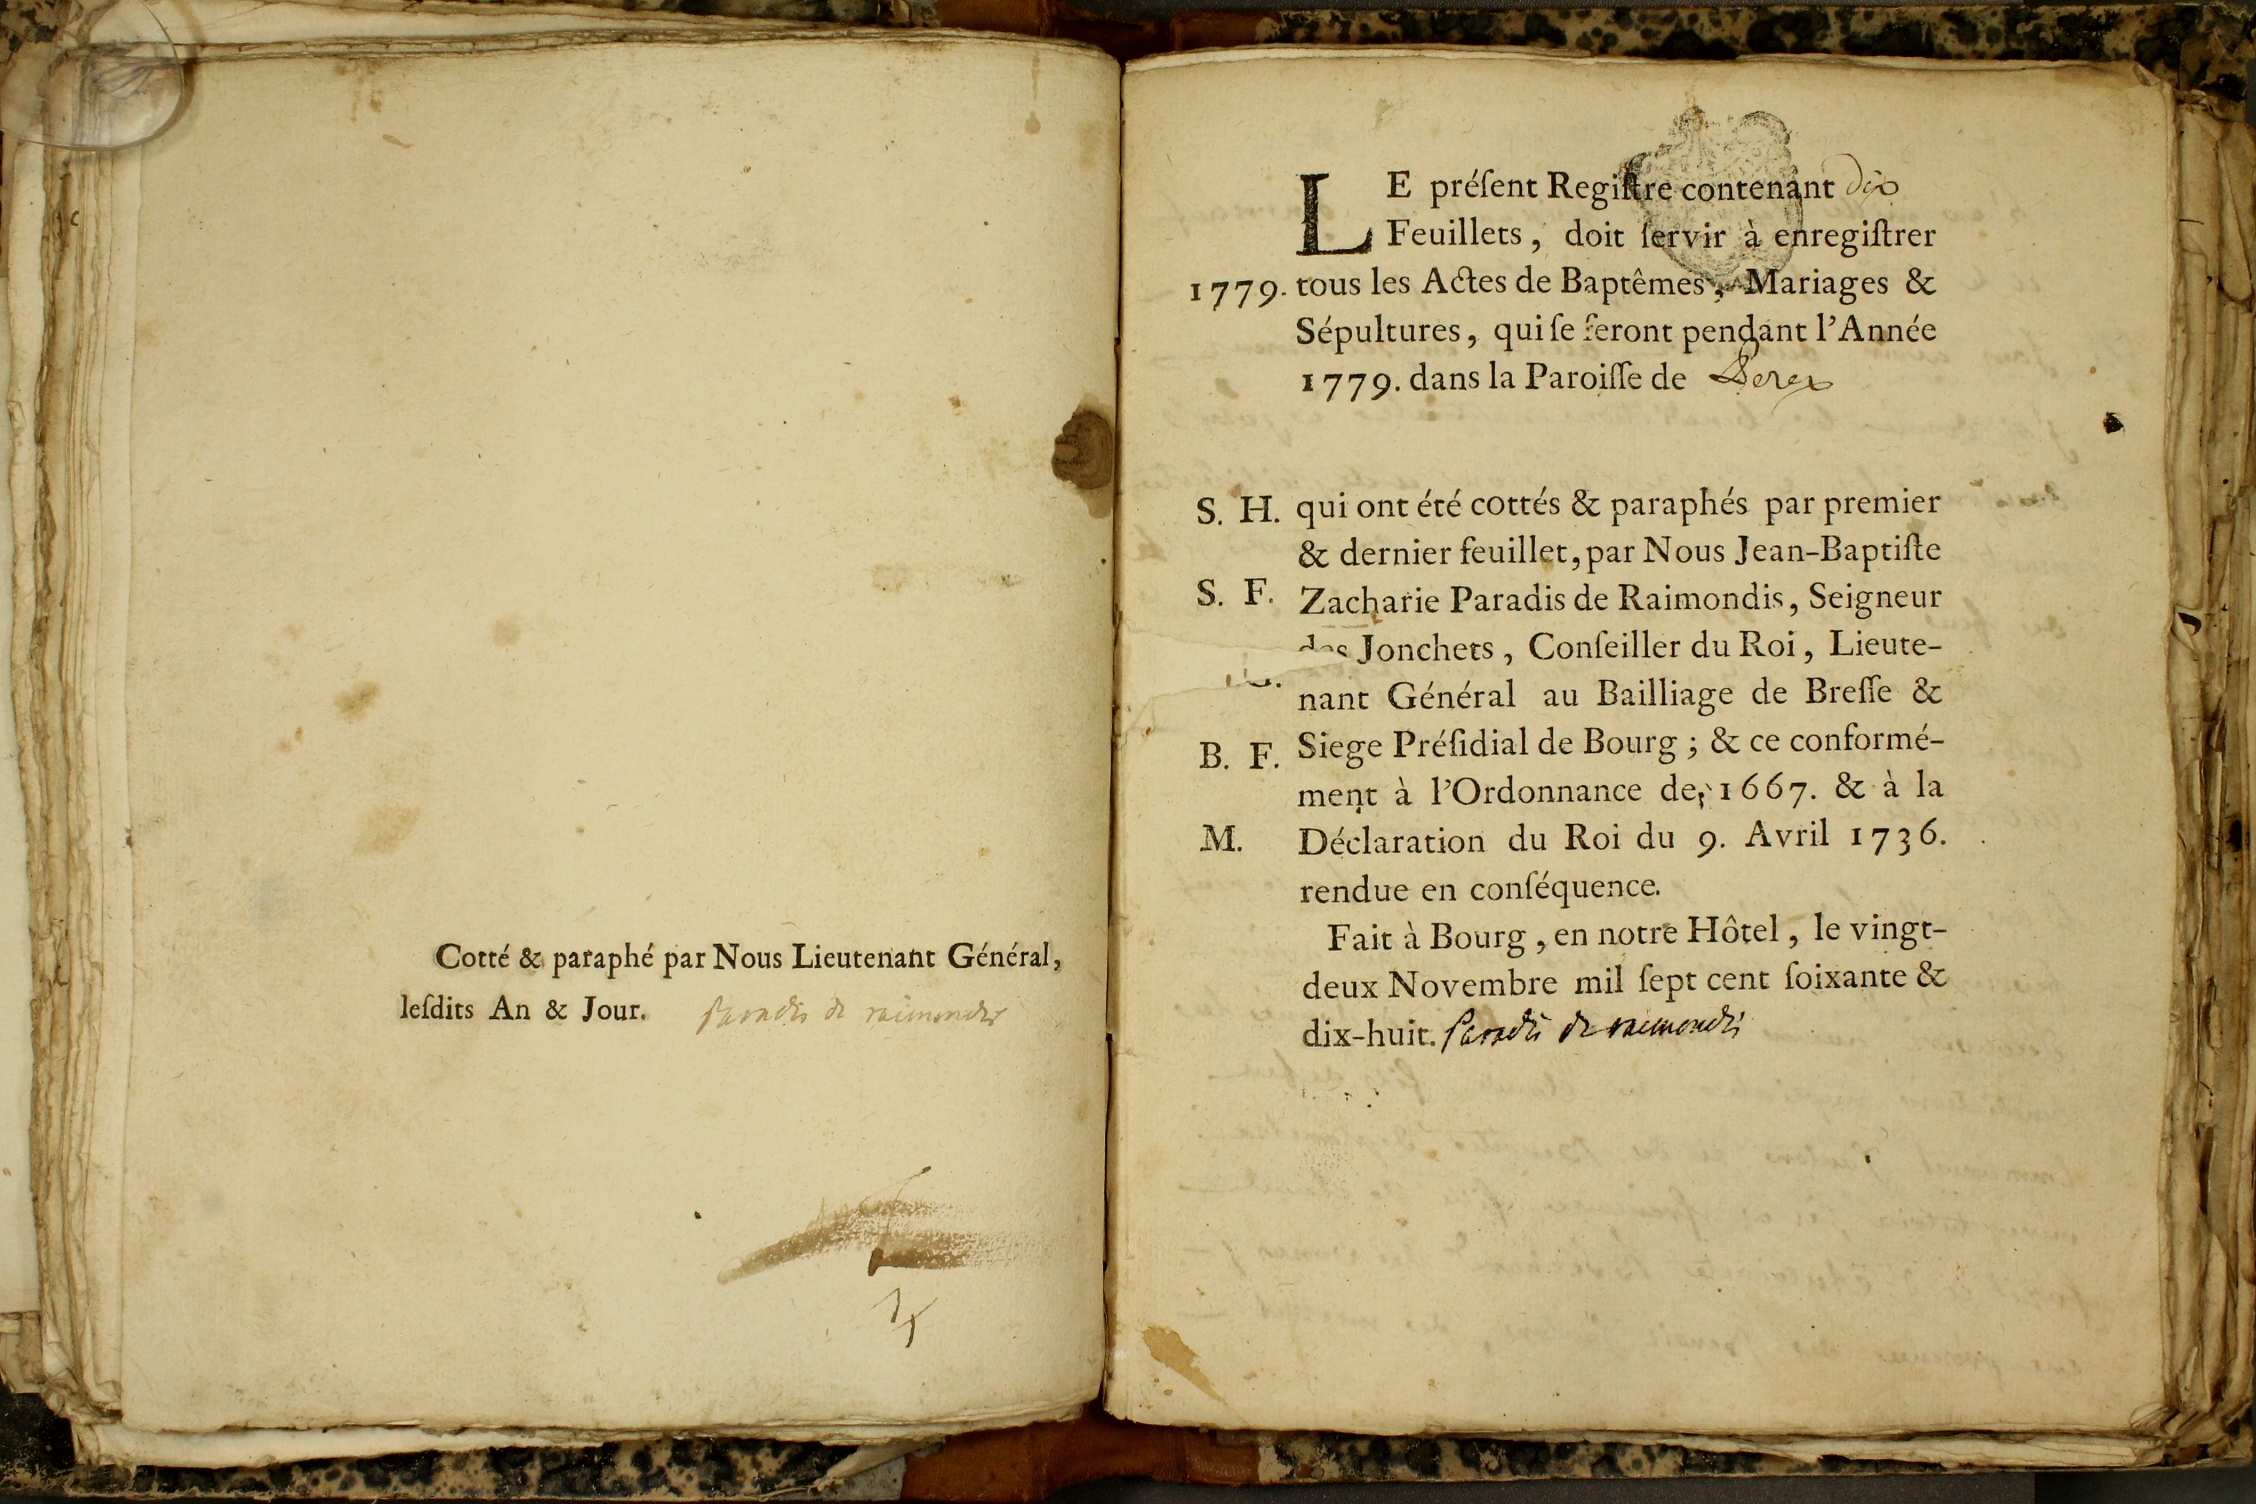 Cotté & paraphé par Nous Lieutenant Général,
leſdits An & Jour. Paradis de raimondis
LE préſent Regiſtre contenant dix
Feuillets, doit ſervir à enregiſtrer
1779. tous les Actes de Baptêmes, Mariages &
Sépultures, qui ſe feront pendant l'Année
1779. dans la Paroiſſe de
S. H. qui ont été cottés & paraphés par premier
& dernier feuillet, par Nous Jean-Baptiſte
S. F. Zacharie Paradis de Raimondis, Seigneur
des Jonchets, Conſeiller du Roi, Lieute-
nant Général au Bailliage de Breſſe &
B. F. Siege Préſidial de Bourg; & ce conformé-
ment à l'Ordonnance de 1667. & à la
M. Déclaration du Roi du 9. Avril 1736.
rendue en conſéquence.
Fait à Bourg, en notre Hôtel, le vingt-
deux Novembre mil ſept cent ſoixante &
dix-huit. Paradis de raimondis